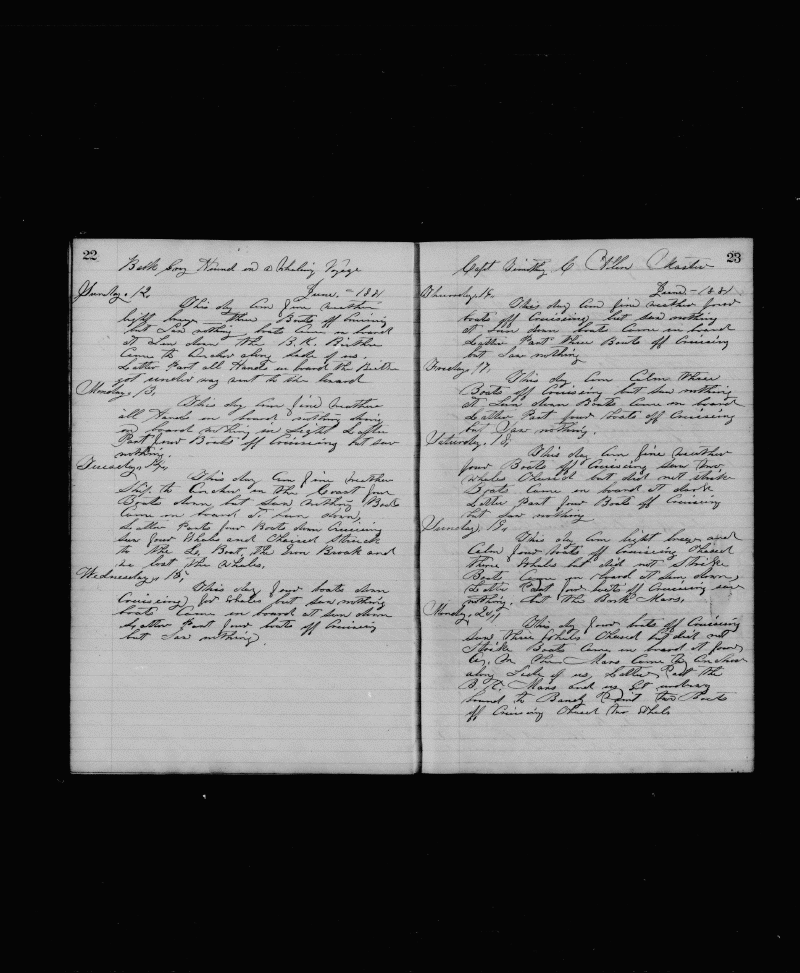 22
Bark Bound on a Whaling Voyage
Sunday. 12 June. - 1881
This day Com fine weather
light three Boats off Cruising
but saw nothing boats Came on board
at Sun down the B.K.
Came to Anchor along Side of us.
Latter Part all Hands on board the
got under way went to the
Monday, 13,
This day Com fine weather
all Hands on board nothing
on board nothing in Sight Latter
Part four Boats off Cruising but saw
nothing.
Tuesday, 14,
This day Com fine weather
Ship to Anchor in the Coast four
Boats down, but saw nothing Boats
Came on board at Sun down,
Latter Part four Boats down Cruising
saw four Whales and Chaised Struck
to the La, Boat, the Iron Broak and
we lost the Whales,
Wednesday, 15
This day four boats down
Cruising for Whales but saw nothing
boats Came on board at sun down
Latter Part four boats off Cruising
but Saw nothing.
23
Capt Timothy C Allen Master
Thursday, 16, June - 1881
This day Com fine weather four
boats off Cruising, but saw nothing
at Sun down boats Came on board
Latter Part three Boats off Cruising
but Saw nothing
Friday, 17,
This day, Com Calm three
Boats off Cruising but saw nothing
at Sun down Boats Came on board
Latter Part four boats off Cruising
but Saw nothing.
Saturday, 18,
This day Com fine weather
four Boats off Cruising saw two
Whales Chaised but did not strike
Boats Came on board at dark
Latter Part four Boats off Cruising
but saw nothing
Sunday, 19,
This day Com light and
Calm four boats off Cruising Chased
three Whales but did not Strike
Boats Came on board at Sun down,
Latter Part four boats off Cruising saw
nothing, but the Bark Mars,
Monday, 20,
This day four boats off Cruising
saw three Whales Chased but did not
Strike Boats Came on board at four
the Mars Came to Anchor
along Side of us, Latter Part the
B.K. Mars and us under
bound to Banch Point two Boats
off Cruising Chased two Whales